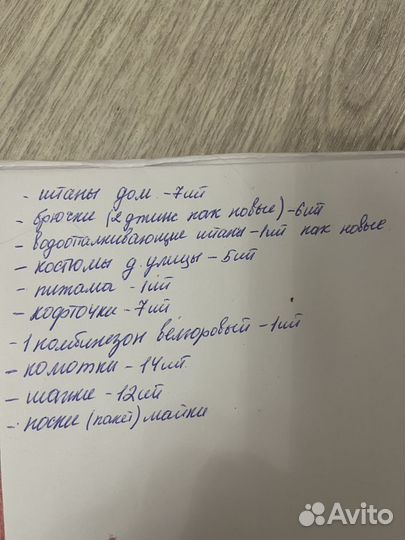 - штаны дом. - 7шт
- брючки (2 джинс как новые) - 6шт
- водоотталкивающие штаны - 1шт как новые.
- костюмы д. улицы - 5шт
- пижама - 1шт
- кофточки - 7шт
- 1 комбинезон велюровый - 1шт
- комотки - 14шт
- шапки - 12шт
- носки (пакет) майки
Avito